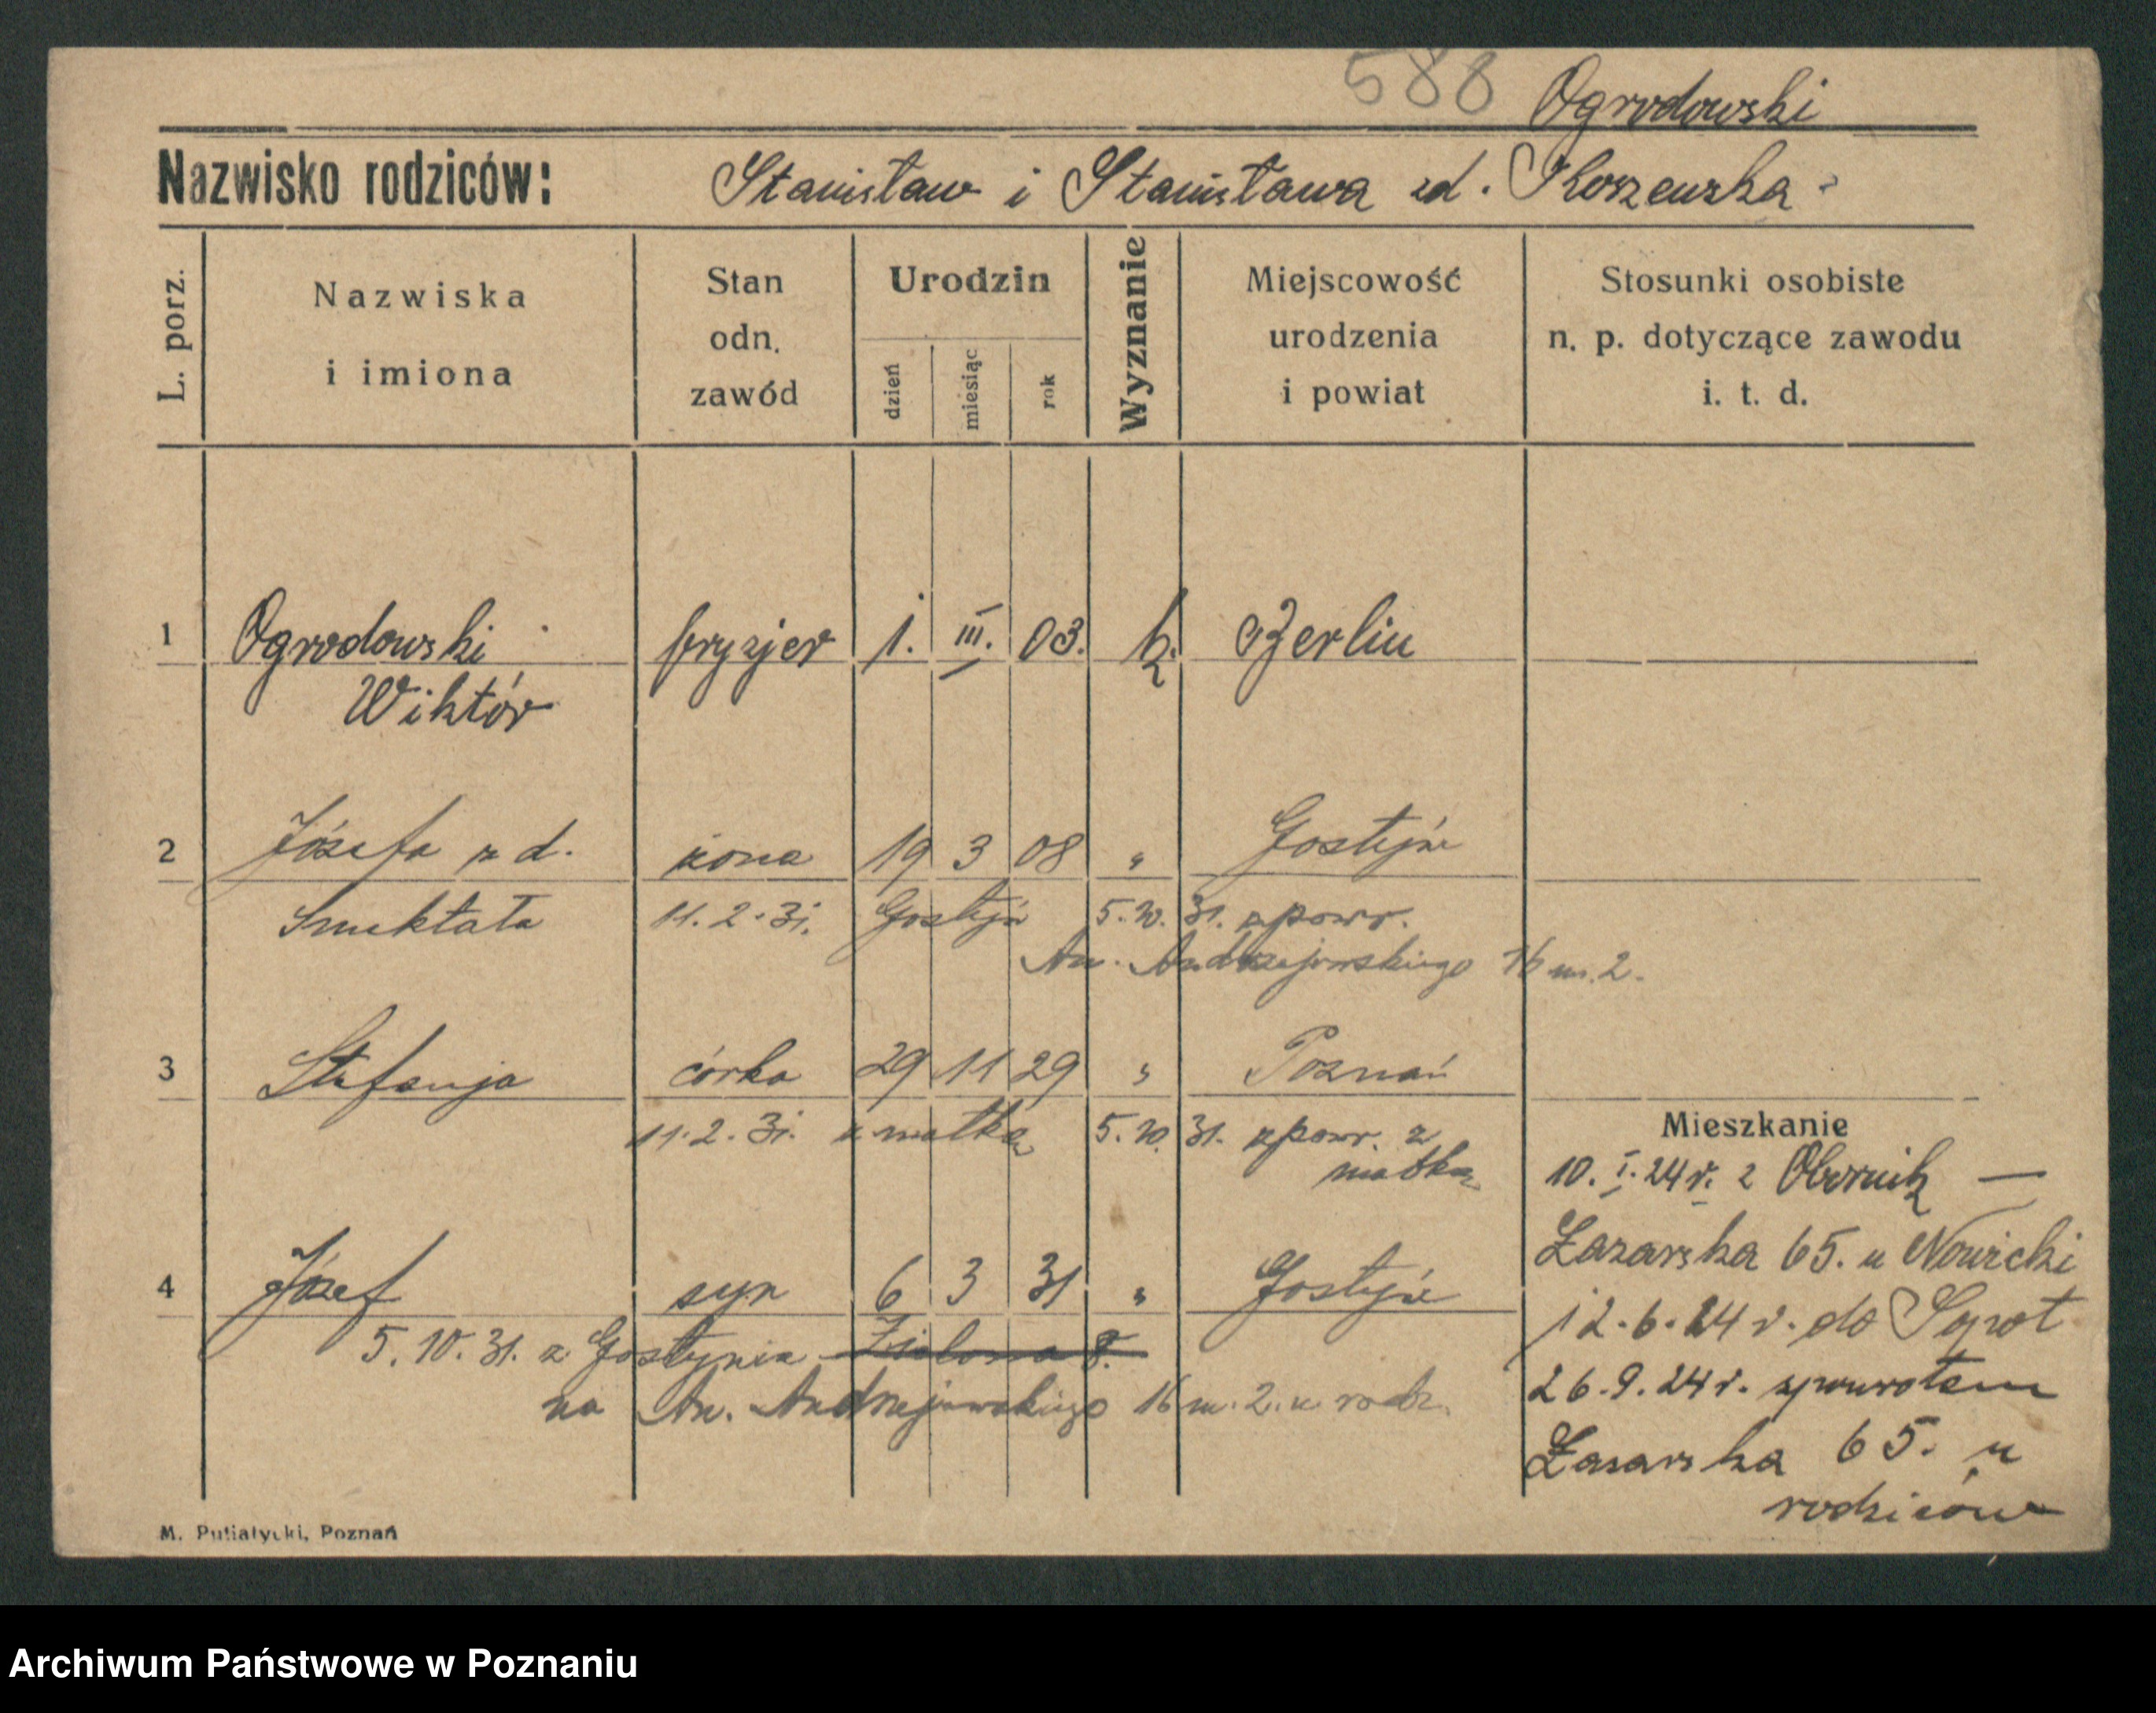 588 Ogrodowski
Nazwisko rodziców: Stanisław i Stanisława zd.
L. porz.
Nazwiska i imiona
Stan odn. zawód
Urodzin
dzień miesiąc rok
Wyznanie
Miejscowość urodzenia i powiat
Stosunki osobiste n. p. dotyczące zawodu i. t. d.
1 Ogrodowski fryzjer 1. III. 03. k. Berlin
Wiktór
2 Józefa z d. żona 19 3 08 " Gostyń
Smektała 11.2.31. Gostyń 5.10.31. zpowr.
An. Andrzejewskiego 16 m. 2.
3 Stefanja córka 29 11 29 " Poznań
11.2.31. z matką 5.10.31. zpowr. z
matką
Mieszkanie
10. I. 24 r. z Obornik —
Łazarska 65. u Nowicki
12.6.24 r. do Sopot
26.9.24 r. zpowrotem
Łazarska 65. u
rodziców
4 Józef syn 6 3 31 " Gostyń
5.10.31. z Gostynia Zielona 8.
na An. Andrzejewskiego 16 m. 2. u rodz.
M. Putiatycki, Poznań
Archiwum Państwowe w Poznaniu